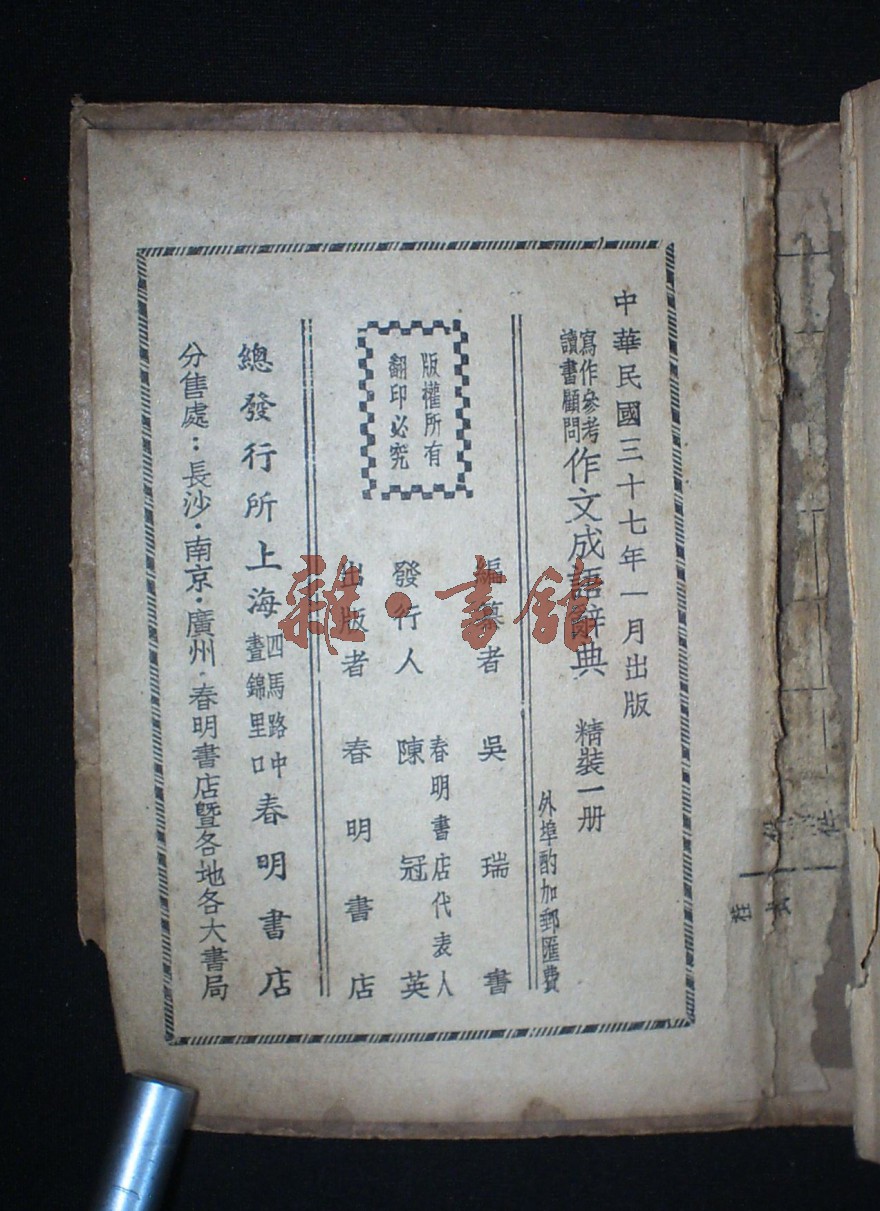 中華民國三十七年一月出版
寫作參考
讀書顧問
作文成語辭典 精裝一册
外埠酌加郵匯費
版權所有
翻印必究
編纂者 吳瑞書
發行人 春明書店代表人 陳冠英
出版者 春明書店
總發行所上海四馬路中晝錦里口春明書店
分售處：長沙·南京·廣州·春明書店暨各地各大書局
雜·書館